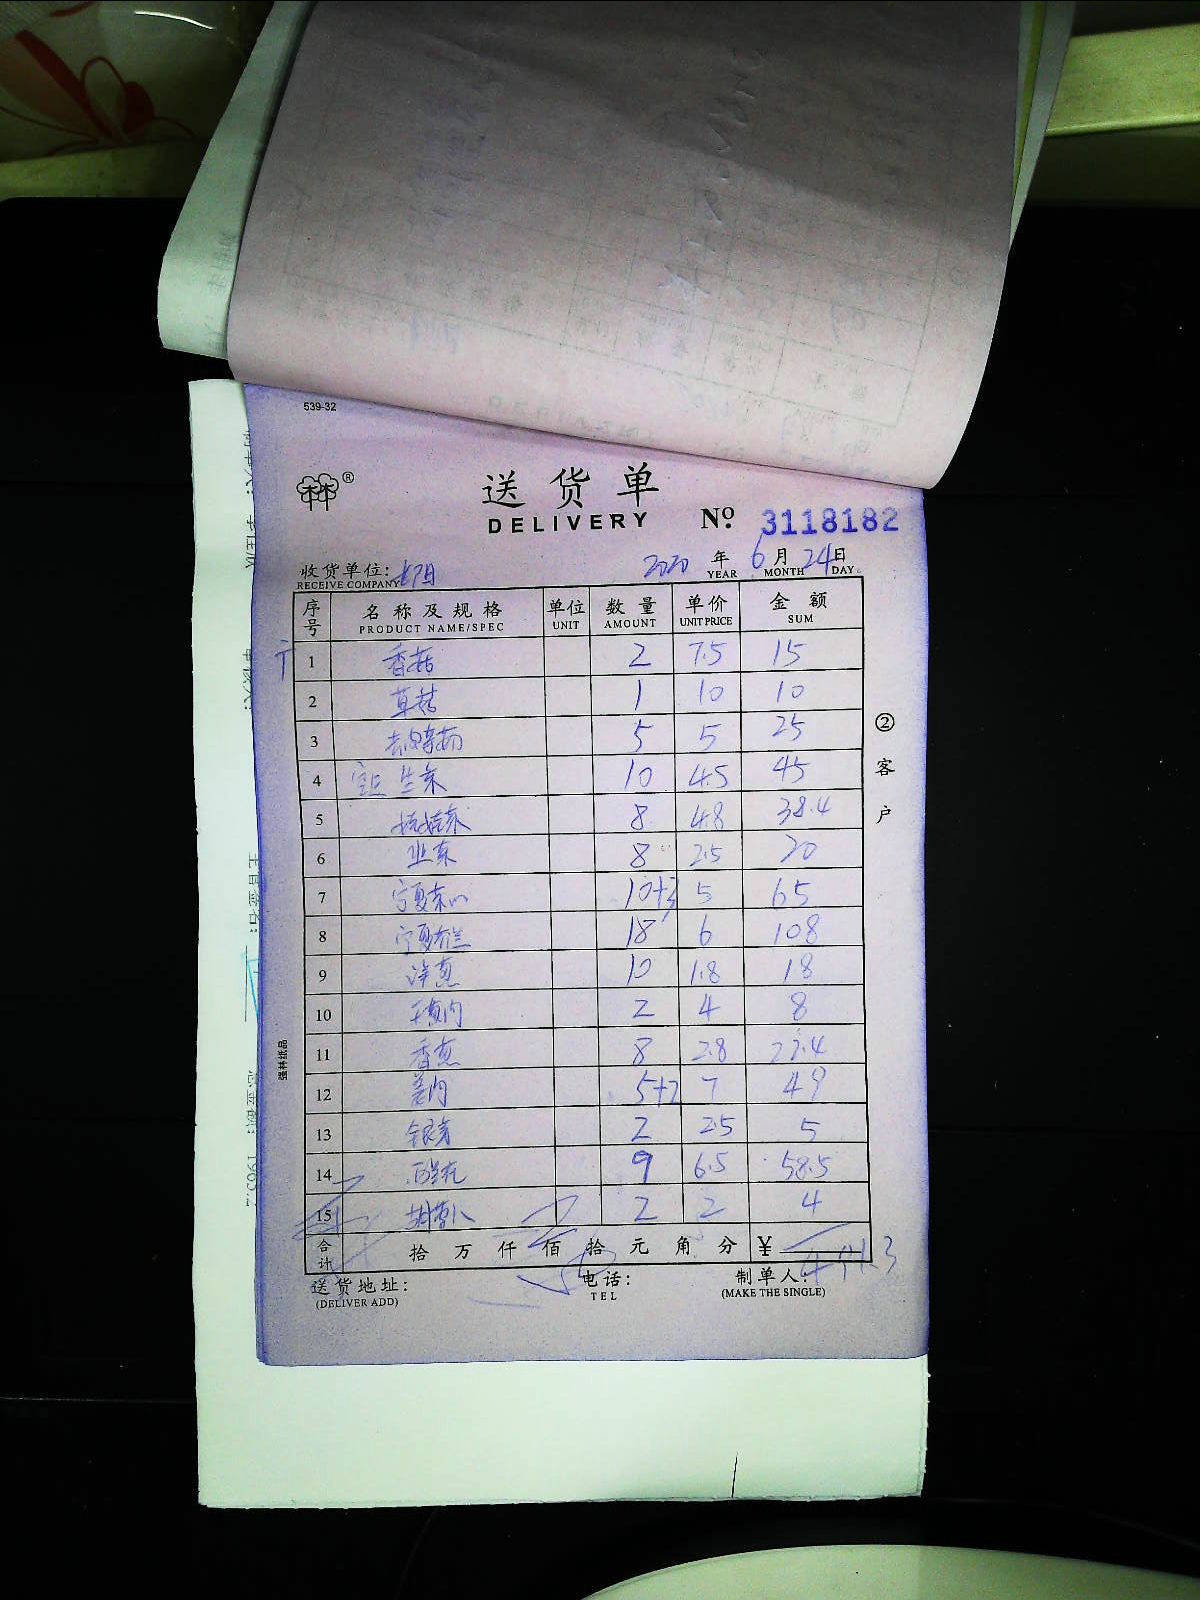 539-32
林®
送货单
DELIVERY Nº 3118182
收货单位:
2020 年 6 月 24 日
RECEIVE COMPANY YEAR MONTH DAY
序号 名称及规格 单位 数量 单价 金额
PRODUCT NAME/SPEC UNIT AMOUNT UNIT PRICE SUM
1 香菇 2 7.5 15
2 草菇 1 10 10
3 5 5 25
4 生菜 10 4.5 45
5 8 4.8 38.4
6 8 2.5 20
7 宁夏菜心 10+3 5 65
8 宁夏芥兰 18 6 108
9 洋葱 10 1.8 18
10 2 4 8
11 香葱 8 2.8 22.4
12 姜肉 5+2 7 49
13 银芽 2 2.5 5
14 西兰花 9 6.5 58.5
15 胡萝卜 2 2 4
合计 拾 万 仟 佰 拾 元 角 分 ¥ 491.3
送货地址: 电话: 制单人:
(DELIVER ADD) TEL (MAKE THE SINGLE)
②客户
强林纸品